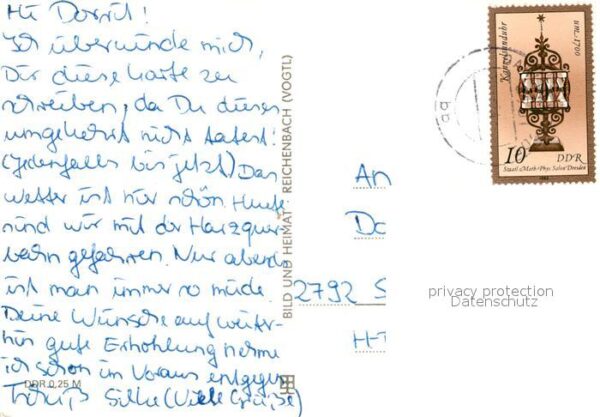 Hi Dorrit!
Ich überwinde mich,
Dir diese Karte zu
schreiben, da Du dieses
umgekehrt nicht tatest!
(Jedenfalls bis jetzt) Das
Wetter ist hier schön. Heute
sind wir mit der Harzquer-
bahn gefahren. Nur abends
ist man immer so müde.
Deine Wünsche auf weiter-
hin gute Erhohlung nehme
ich schon im Voraus entgegen
Tschüß Silke (Viele Grüße)
DDR 0,25 M
BILD UND HEIMAT REICHENBACH (VOGTL)
An
Do
2792 S
H-T
privacy protection
Datenschutz
Kanzelsanduhr
um 1700
10 DDR
Staatl. Math.-Phys. Salon Dresden
1983